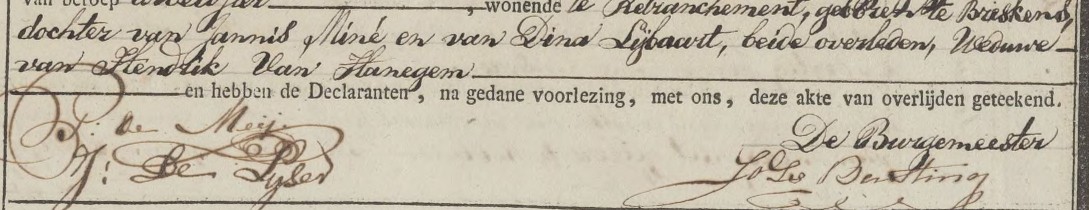 van beroep arbeidster, wonende te Retranchement, geboren te Breskens,
dochter van Jannis Miné en van Dina Lijbaart, beide overleden, Weduwe
van Hendrik Van Hanegem
en hebben de Declaranten, na gedane voorlezing, met ons, deze akte van overlijden geteekend.
P: de Meij
De Burgemeester
J: De Pijser